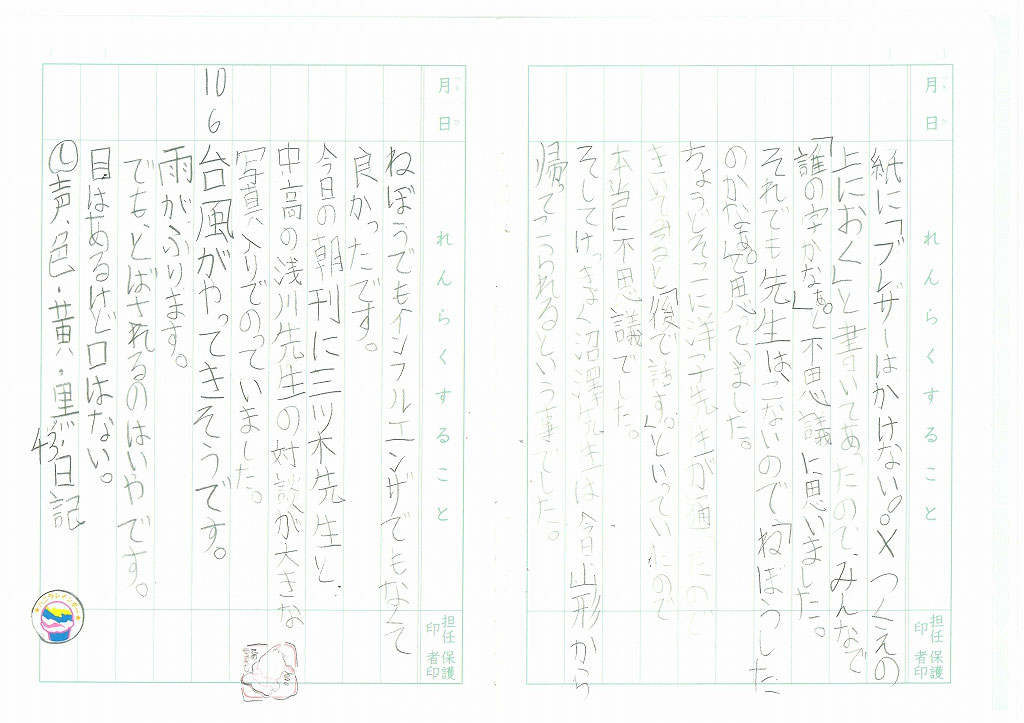 月 日
れんらくすること
担任印 保護者印
紙に「ブレザーはかけない。」✕つくえの
上におく」と書いてあったので、みんなで
「誰の字かなぁ。」と不思議に思いました。
それでも先生は、こないので「ねぼうした
のかなぁ。」て思っていました。
ちょうどそこに洋子先生が通ったので
きいてみると「後で話す。」といっていたので
本当に不思議でした。
そしてけっきょく沼澤先生は今日山形から
帰ってこられるという事でした。
月 日
れんらくすること
担任印 保護者印
ねぼうでもインフルエンザでもなくて
良かったです。
今日の朝刊に三ツ木先生と、
中高の浅川先生の対談が大きな
写真入りでのっていました。
10 6 台風がやってきそうです。
雨がふります。
でも、とばされるのはいやです。
目はあるけど口はない。
し 声、色・黄・黒、43日記